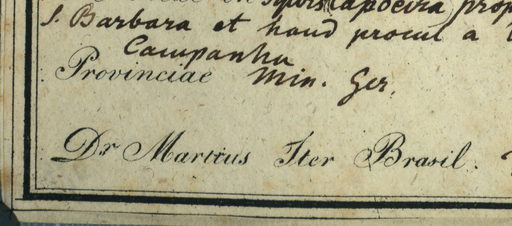 sylvis capoeira prop
S. Barbara et haud procul a
Campanha
Provinciae Min. Ger.
Dr Martius Iter Brasil.